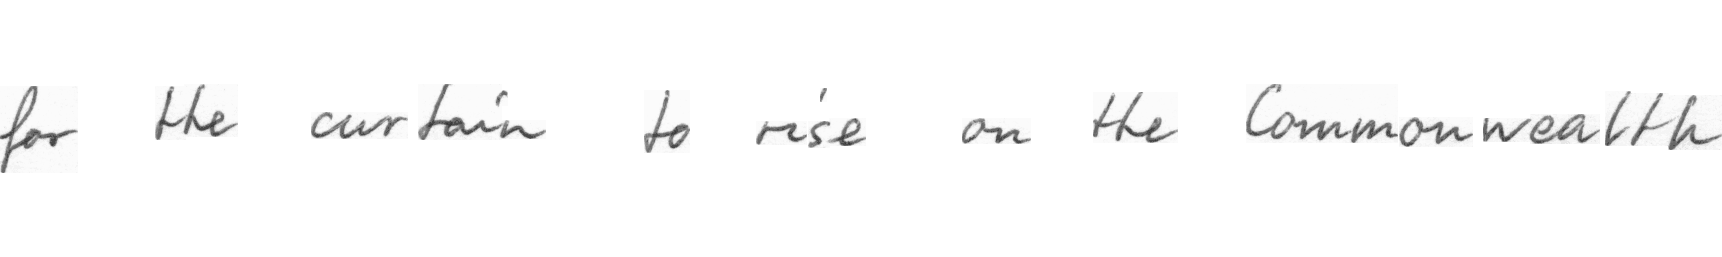 for the curtain to rise on the Commonwealth